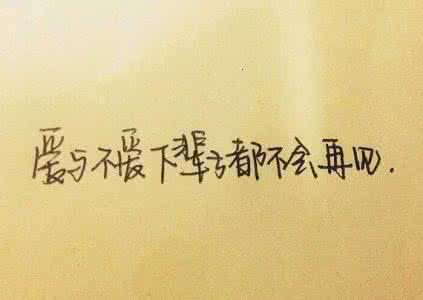 爱与不爱下辈子都不会再见.